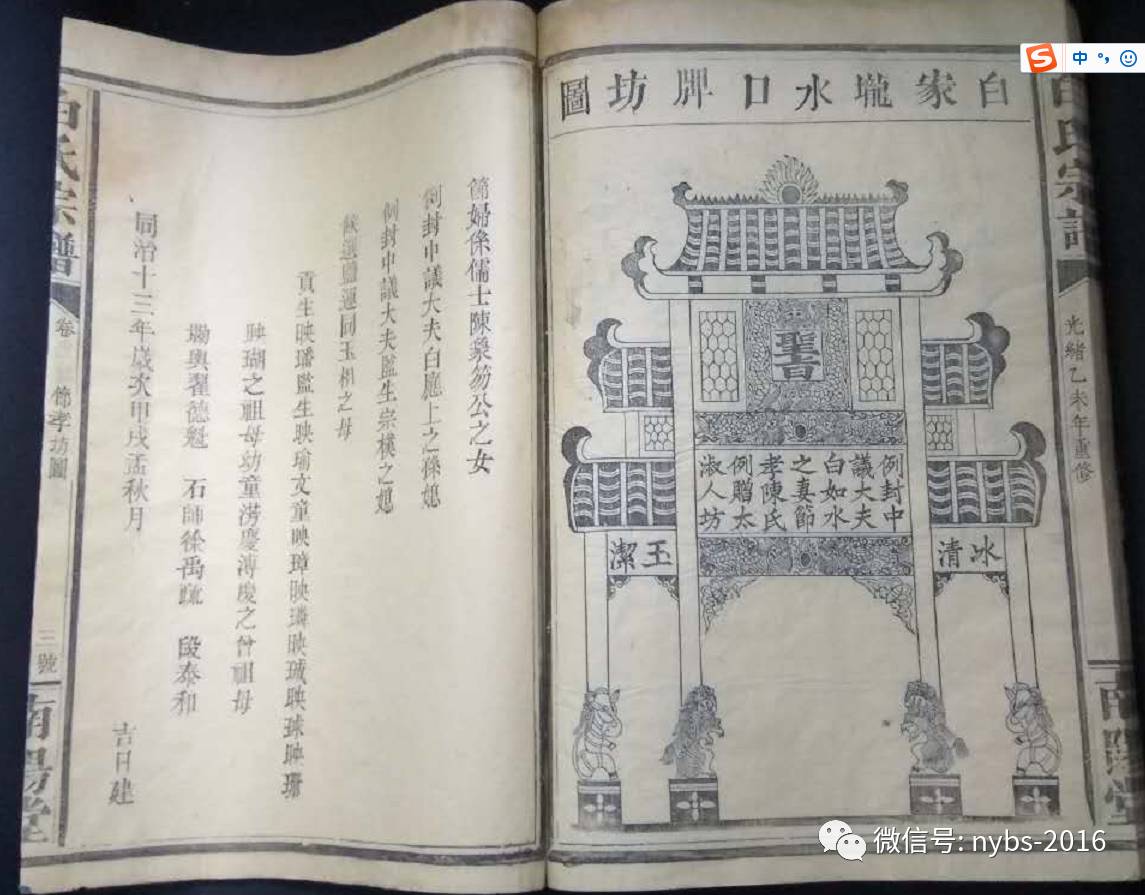 白家壠水口牌坊圖
聖旨
例封中
議大夫
白如水
之妻節
孝陳氏
例贈太
淑人坊
冰清
玉潔
光緒乙未年重修
節婦係儒士陳象笏公之女
例封中議大夫白應上之孫媳
例封中議大夫監生宗樸之媳
候選鹽運同玉相之母
貢生映璠監生映瑜文童映璋映璘映珹映球映珊
映瑚之祖母幼童澇慶溥慶之曾祖母
石師徐禹疏 段泰和
同治十三年歲次甲戌孟秋月
吉日建
白氏宗譜
卷
節孝坊圖
三號
南陽堂
中
微信号: nybs-2016